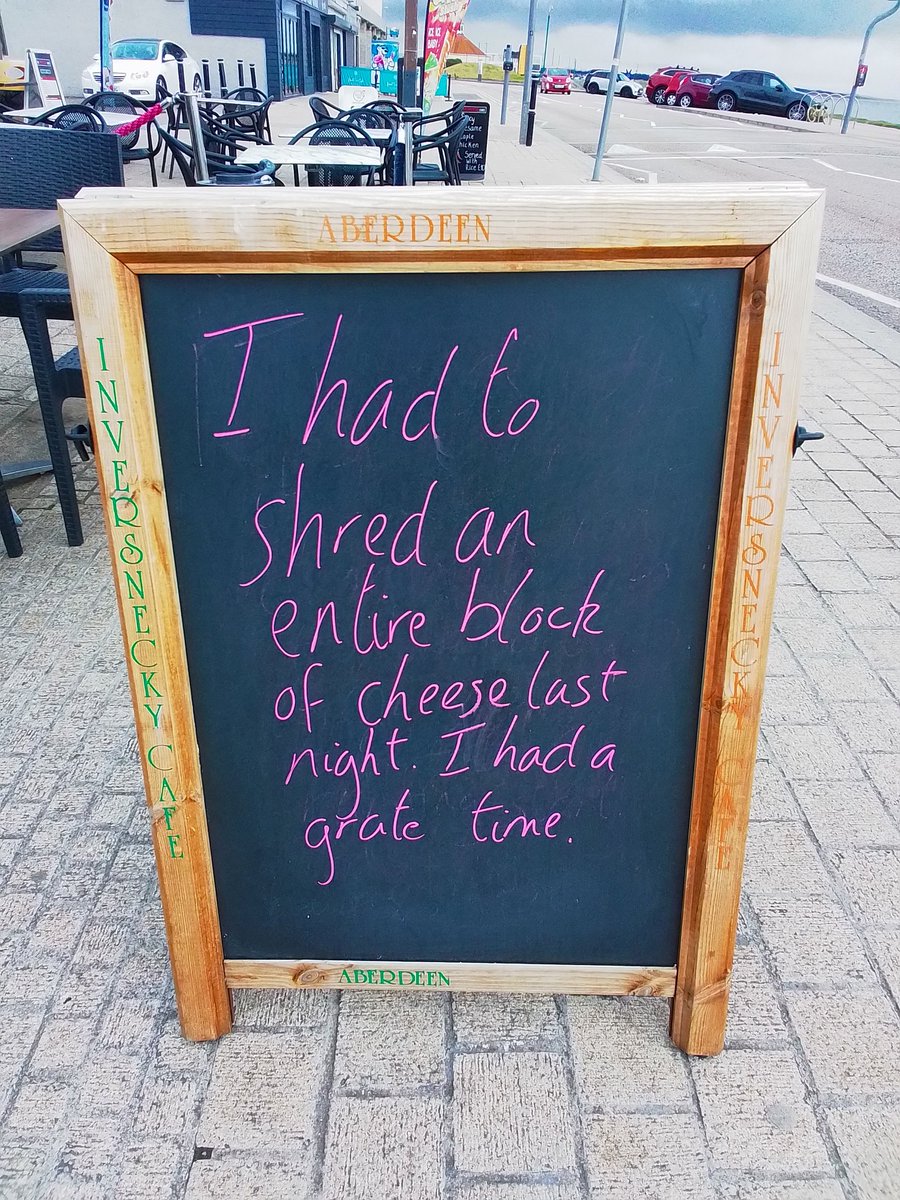 ABERDEEN
INVERSNECKY CAFE
I had to
shred an
entire block
of cheese last
night. I had a
grate time.
INVERSNECKY CAFE
ABERDEEN